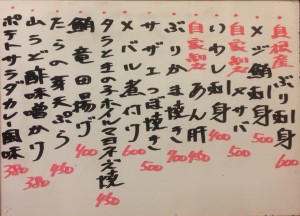 島根産 ぶり刺身 600
メジ鮪刺身 500
いわし刺身 400
自家製 〆サバ 500
自家製 あん肝 700
ぶりかま焼き 380
サザエつぼ焼き 500
メバル煮付け 600
タラときのこホイルマヨネーズ焼 450
鮪竜田揚げ 400
たらの芽天ぷら 450
山うど酢味噌かけ 380
ポテトサラダカレー風味 380